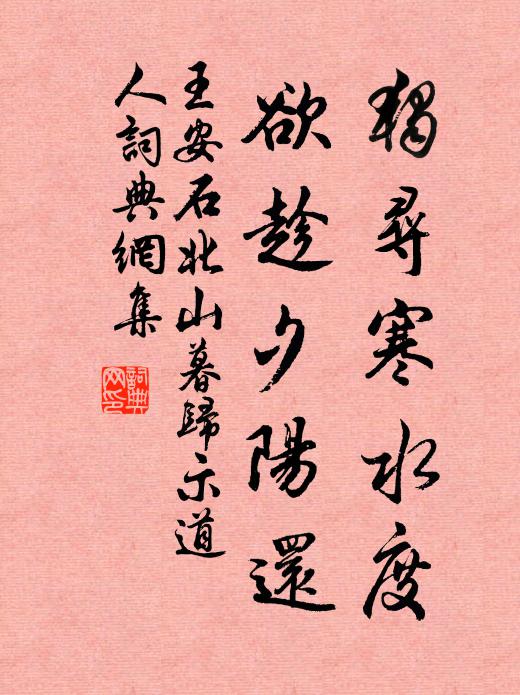 獨尋寒水度
欲趁夕陽還
王安石北山暮歸示道
人詞典網集
詞典
网印